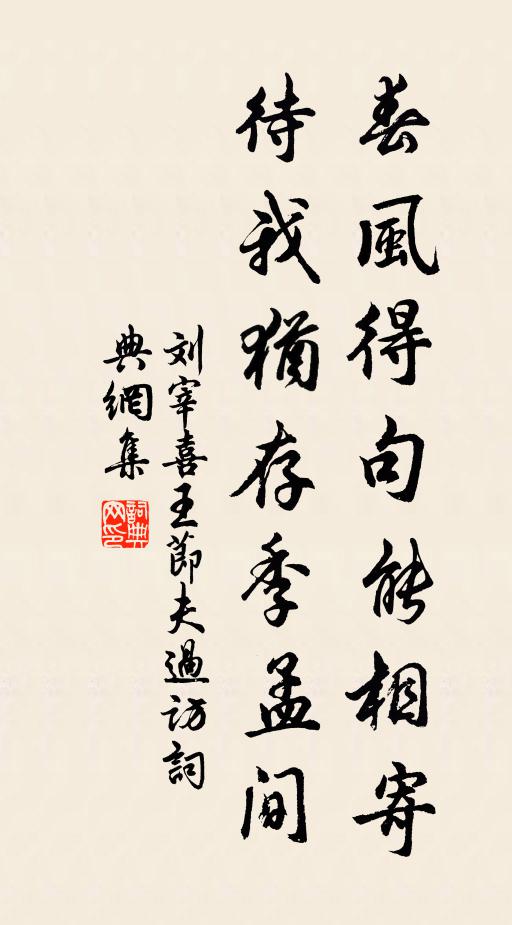 春風得句能相寄
待我猶存季孟间
刘宰喜王節夫過访詞
典網集
詞典网印